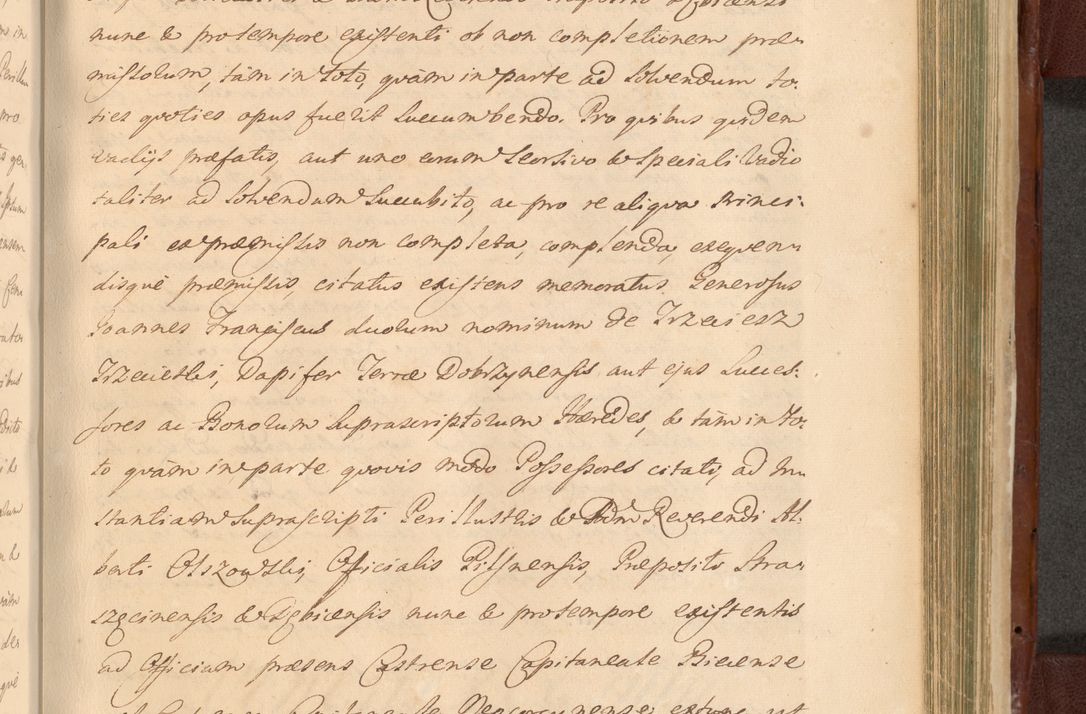 nunc & protempore existenti ob non completionem præ-
missorum, tàm in toto, quàm in parte ad solvendum to-
ties quoties opus fuerit succumbendo. Pro quibus quidem
vadijs præfatis, aut uno eorum seorsivo & speciali vadio
taliter ad solvendum succubito, ac pro re aliqva princi-
pali ex præmissis non completa, complenda, exequen-
disquè præmissis, citatus existens memoratus Generosus
Joannes Franciscus duorum nominum de Trzeciesz
Trzecieski, Dapifer Terræ Dobrzynensis aut ejus succes-
sores ac Bonorum suprascriptorum Hæredes, & tàm in to-
to quàm in parte quovis modo Possessores citati, ad In-
stantiam suprascripti Perillustris & Adm Reverendi Al-
berti Olszowski, Officialis Pilsnensis, Præposito Stra-
szęcinensis & Dębicensis nunc & protempore existentis
ad Officium præsens Castrense Capitaneale Biecense